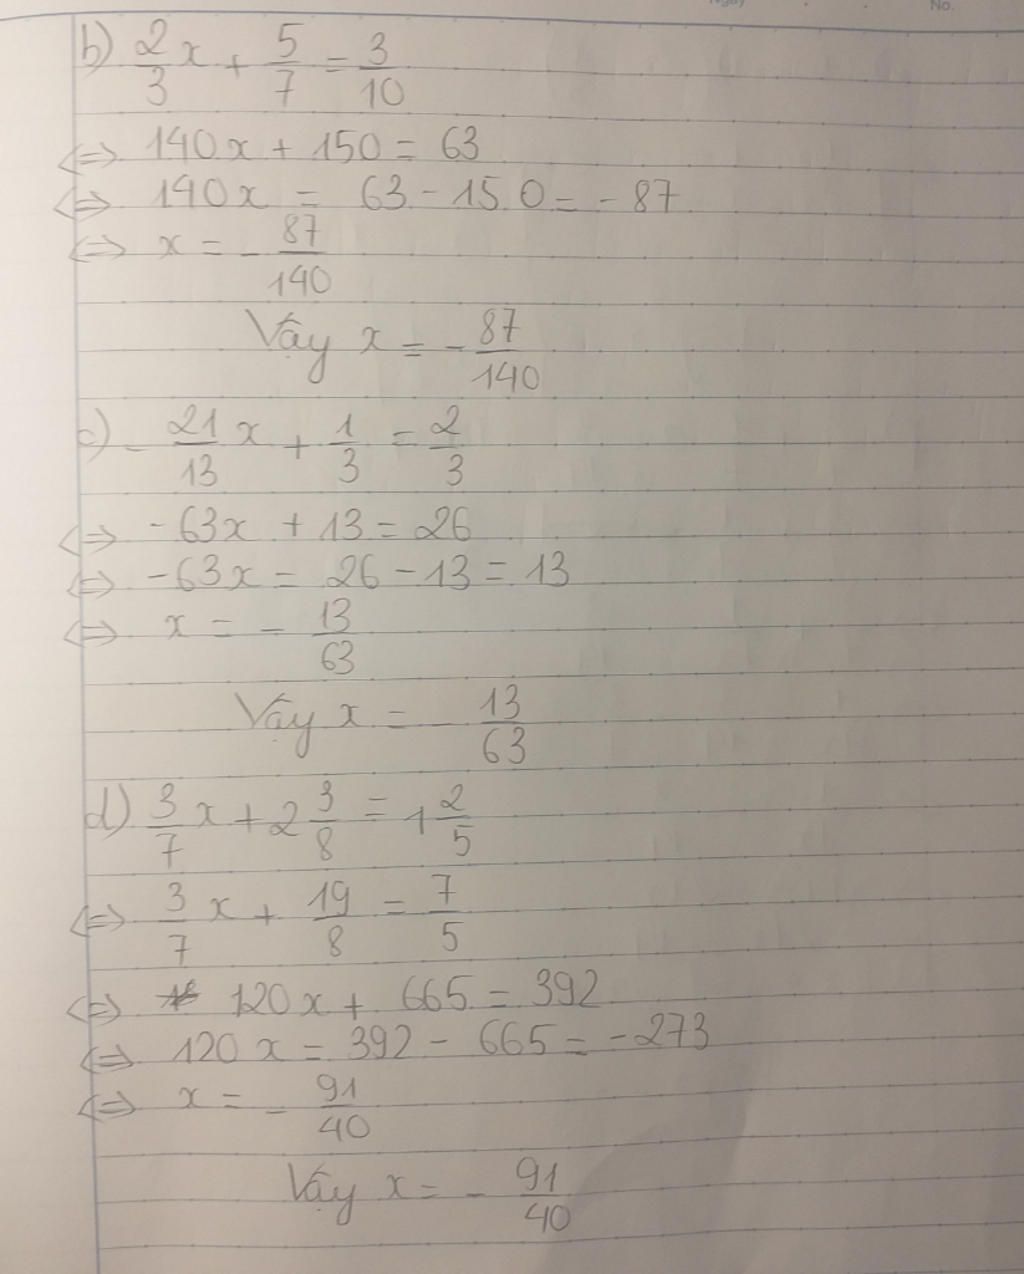 Ngày
No.
b) 2/3 x + 5/7 = 3/10
<=> 140x + 150 = 63
<=> 140x = 63 - 150 = - 87
<=> x = - 87/140
Vậy x = - 87/140
c) - 21/13 x + 1/3 = 2/3
<=> -63x + 13 = 26
<=> -63x = 26 - 13 = 13
<=> x = - 13/63
Vậy x = - 13/63
d) 3/7 x + 2 3/8 = 1 2/5
<=> 3/7 x + 19/8 = 7/5
<=> 120x + 665 = 392
<=> 120x = 392 - 665 = -273
<=> x = - 91/40
Vậy x = - 91/40